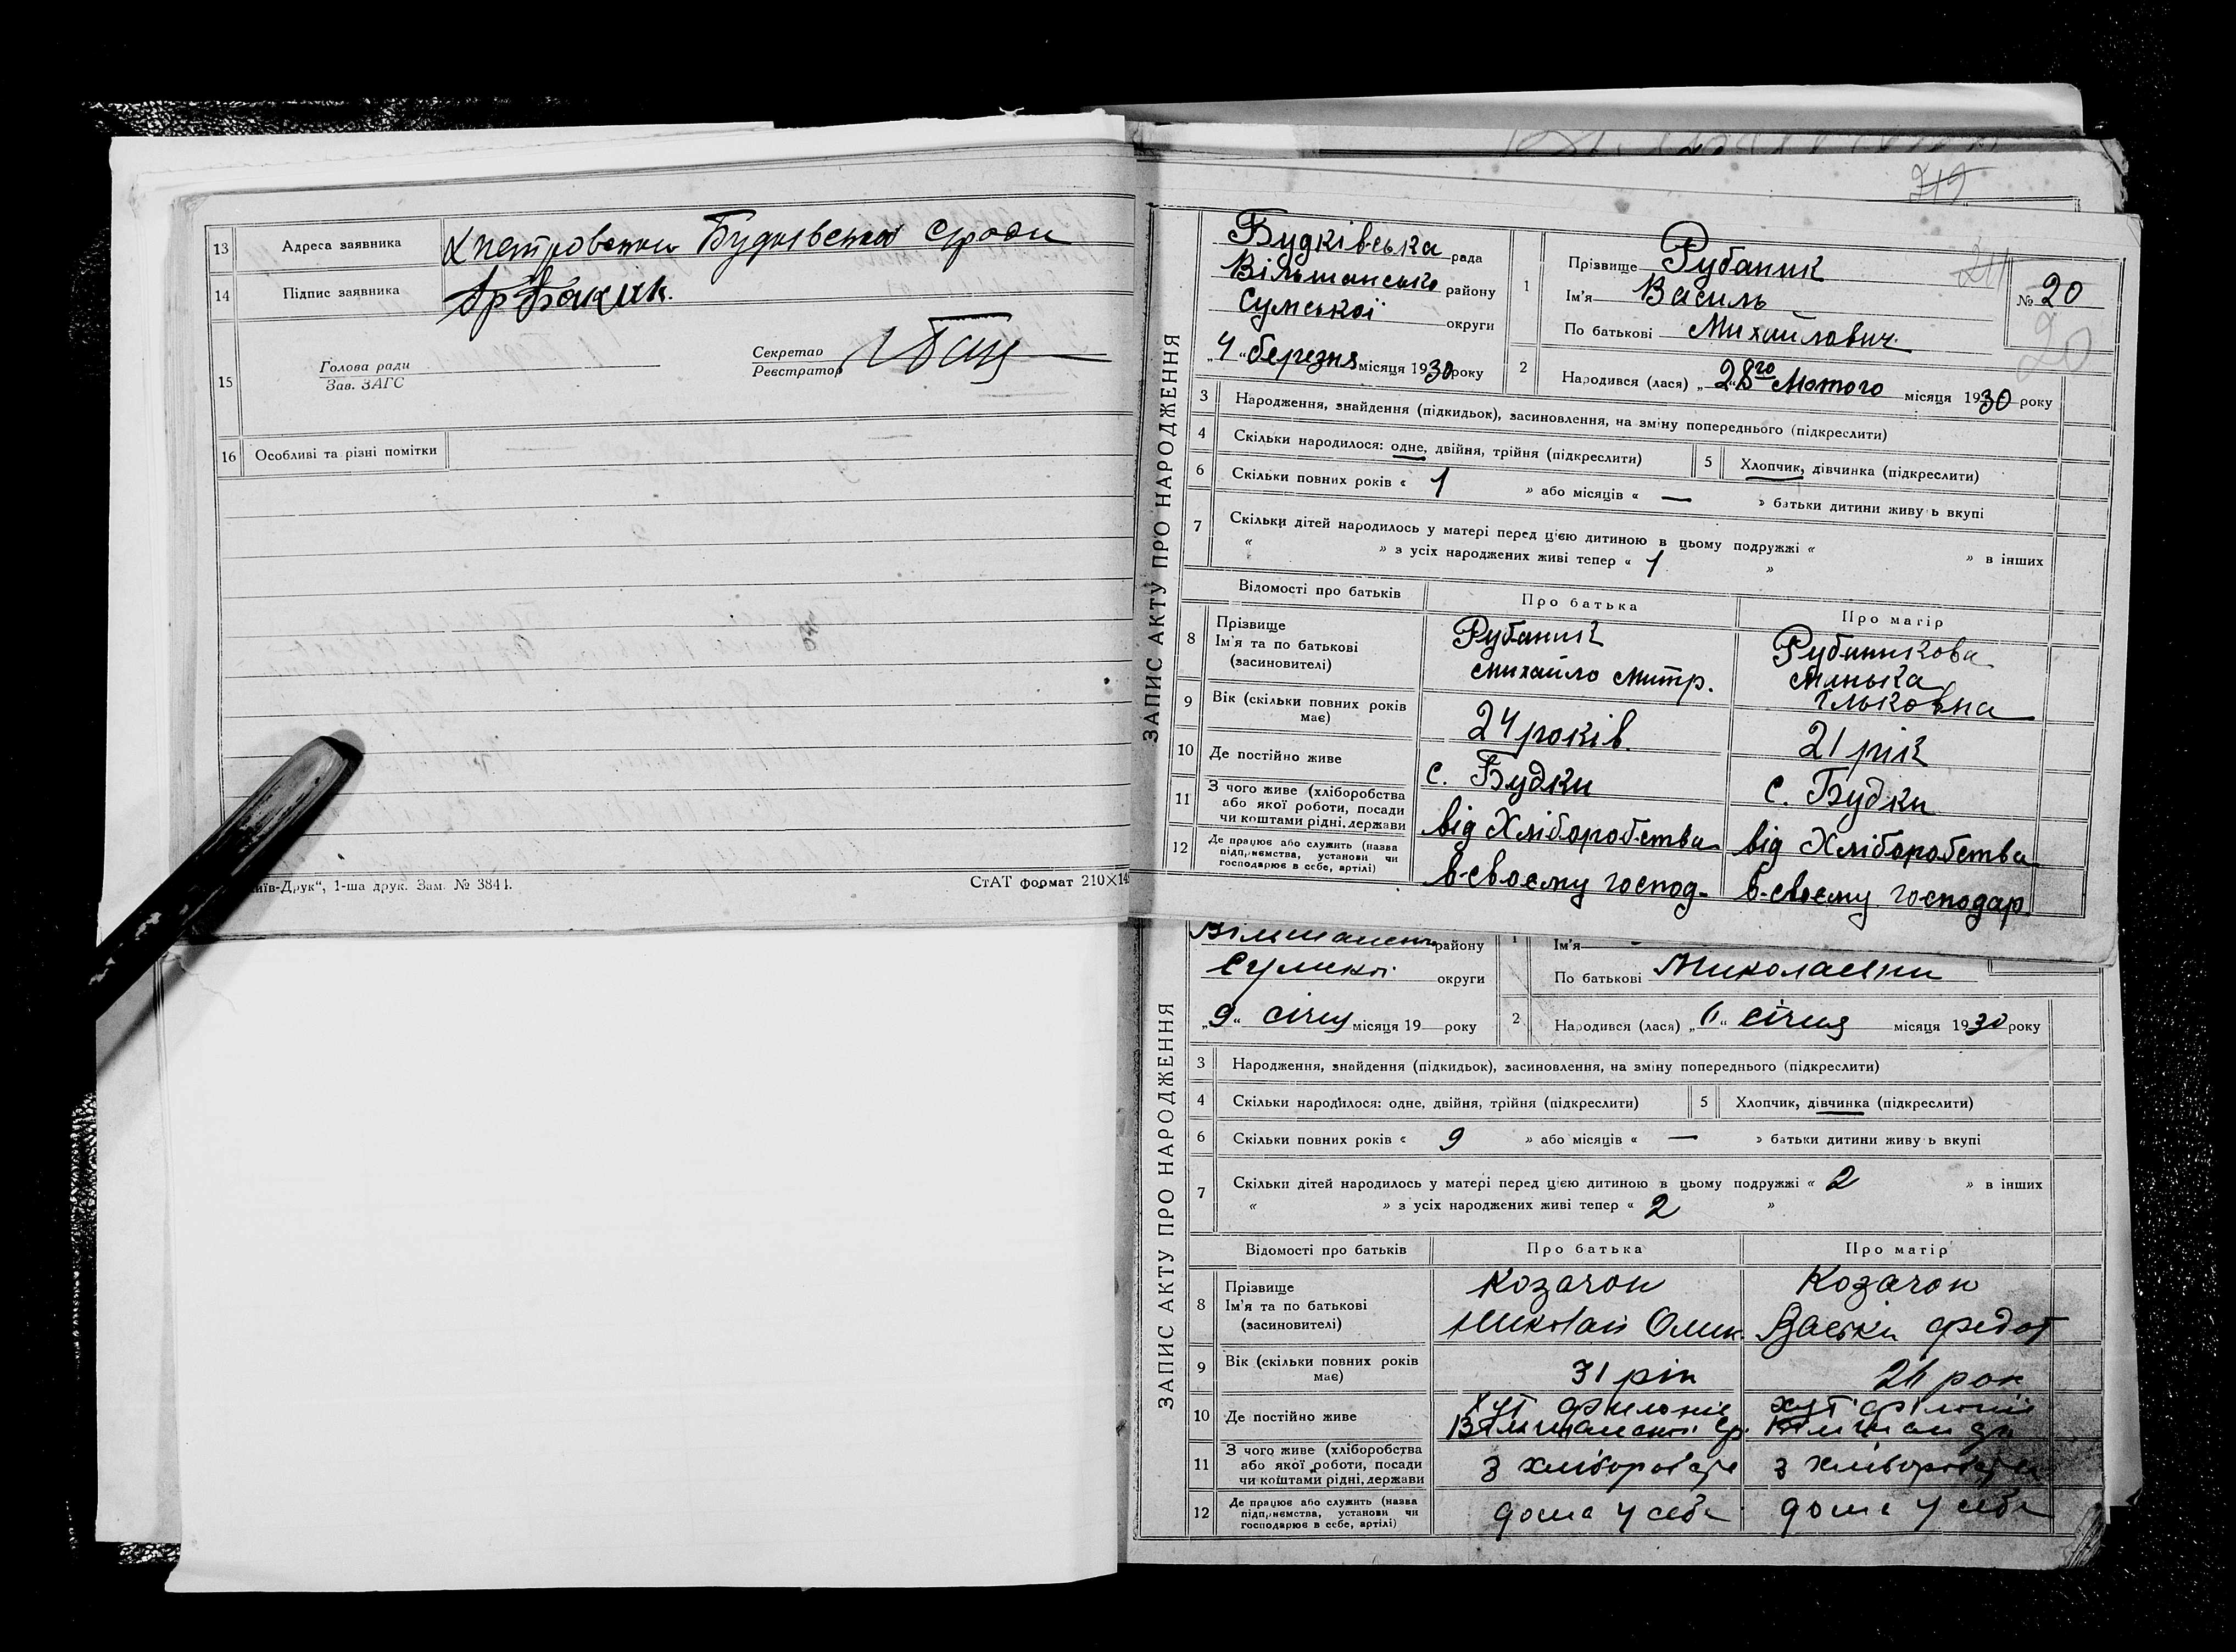 13 Адреса заявника х Петровськи Будківської с/ради
14 Підпис заявника
15 Голова ради
Зав. ЗАГС
Секретар
Реєстратор
16 Особливі та різні помітки
иїв-Друк“, 1-ша друк. Зам. № 3841.
СтАТ формат 210×14
719
ЗАПИС АКТУ ПРО НАРОДЖЕННЯ
Будківська рада
Вільшансько району
Сумської округи
„4“ березня місяця 1930 року
1 Прізвище Рубаник
Ім'я Василь
По батькові Михайлович
211
№ 20
20
2 Народився (лася) „28го“ Лютого місяця 1930 року
3 Народження, знайдення (підкидьок), засиновлення, на зміну попереднього (підкреслити)
4 Скільки народилося: одне, двійня, трійня (підкреслити)
5 Хлопчик, дівчинка (підкреслити)
6 Скільки повних років « 1 » або місяців « — » батьки дитини живуь вкупі
7 Скільки дітей народилось у матері перед цією дитиною в цьому подружжі « » в інших
« » з усіх народжених живі тепер « 1 »
Відомості про батьків Про батька Про матір
8 Прізвище
Ім'я та по батькові
(засиновителі)
Рубаник
Михайло Митр.
Рубаникова
Ільковна
9 Вік (скільки повних років
має)
24 років.
21 рік
10 Де постійно живе
с. Будки
с. Будки
11 З чого живе (хліборобства
або якої роботи, посади
чи коштами рідні, держави
від Хліборобства
від Хліборобства
12 Де працює або служить (назва
підприємства, установи чи
господарює в себе, артілі)
в-своєму господ-
в-своєму господар
ЗАПИС АКТУ ПРО НАРОДЖЕННЯ
Вільшанськ району
Сумської округи
„9“ січня місяця 19 року
1 Ім'я
По батькові Миколаєвни
2 Народився (лася) „6“ січня місяця 1930 року
3 Народження, знайдення (підкидьок), засиновлення, на зміну попереднього (підкреслити)
4 Скільки народилося: одне, двійня, трійня (підкреслити)
5 Хлопчик, дівчинка (підкреслити)
6 Скільки повних років « 9 » або місяців « — » батьки дитини живуь вкупі
7 Скільки дітей народилось у матері перед цією дитиною в цьому подружжі « 2 » в інших
« » з усіх народжених живі тепер « 2 »
Відомості про батьків Про батька Про матір
8 Прізвище
Ім'я та по батькові
(засиновителі)
Козачок
Николай Олик.
Козачок
Васька Федот
9 Вік (скільки повних років
має)
31 рік
10 Де постійно живе
хут
Вільшанської ср.
хут
11 З чого живе (хліборобства
або якої роботи, посади
чи коштами рідні, держави
з хліборобств
з хліборобств
12 Де працює або служить (назва
підприємства, установи чи
господарює в себе, артілі)
дома у себе
дома у себе